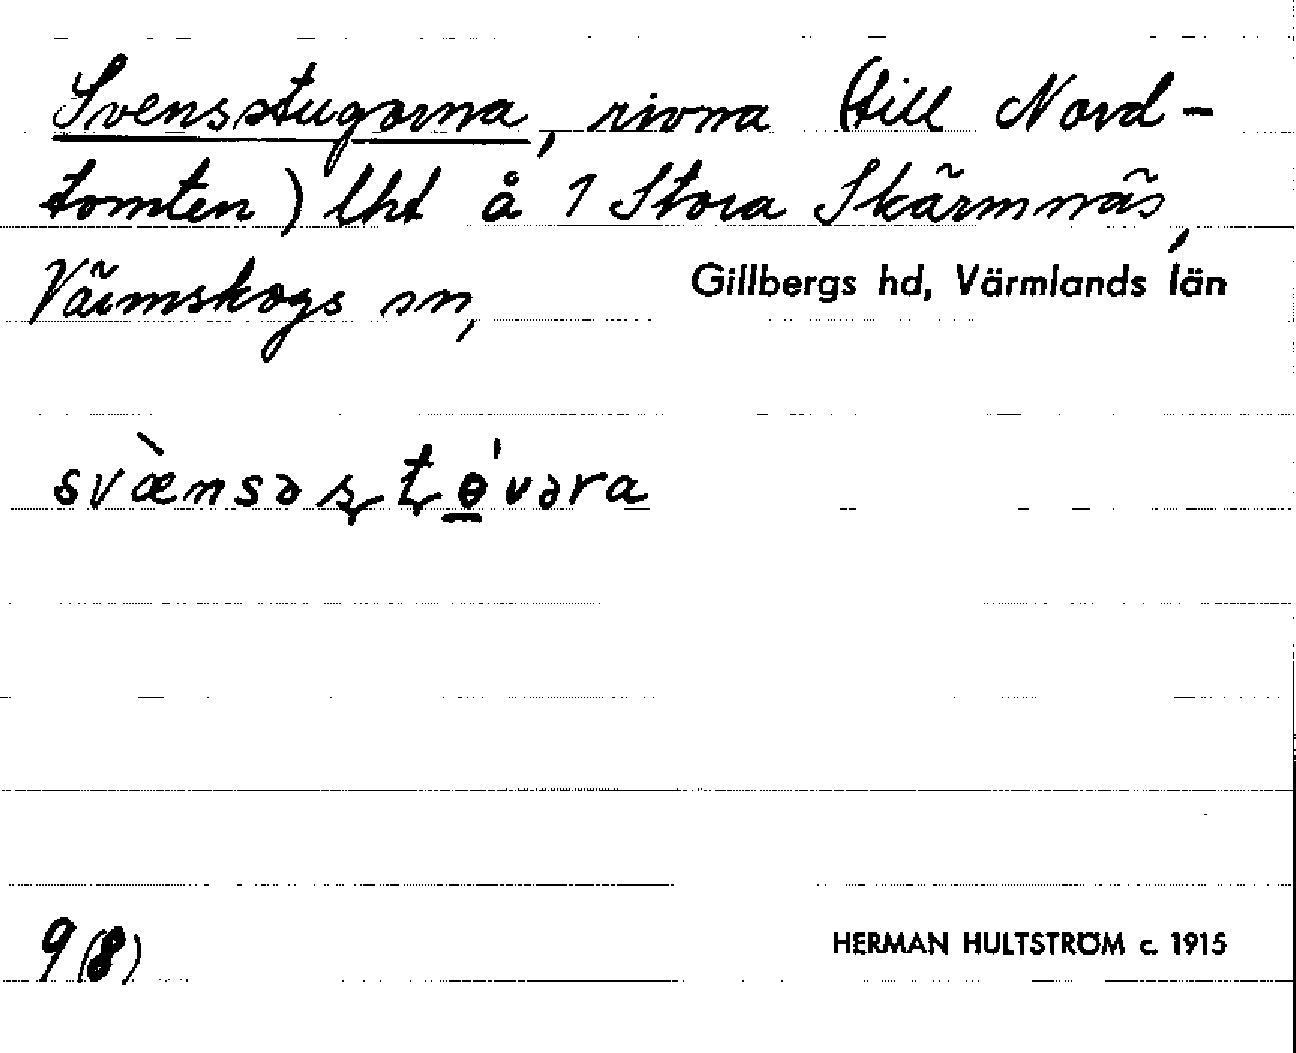 Svensstugorna, rivna (till Nord-
tomten) lht å 1 Stora Skärmnäs,
Värmskogs sn, Gillbergs hd, Värmlands län
svæ̀nsəʂʈɵ̲́vəra
9(8) HERMAN HULTSTRÖM c. 1915